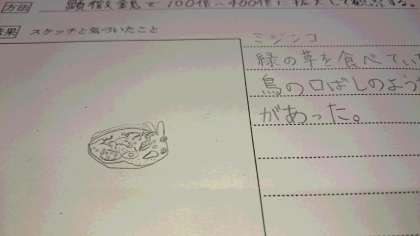 方法 顕微鏡で100倍〜400倍に拡大して観察する。
結果 スケッチと気づいたこと
ミジンコ
緑の草を食べてい
鳥の口ばしのよう
があった。